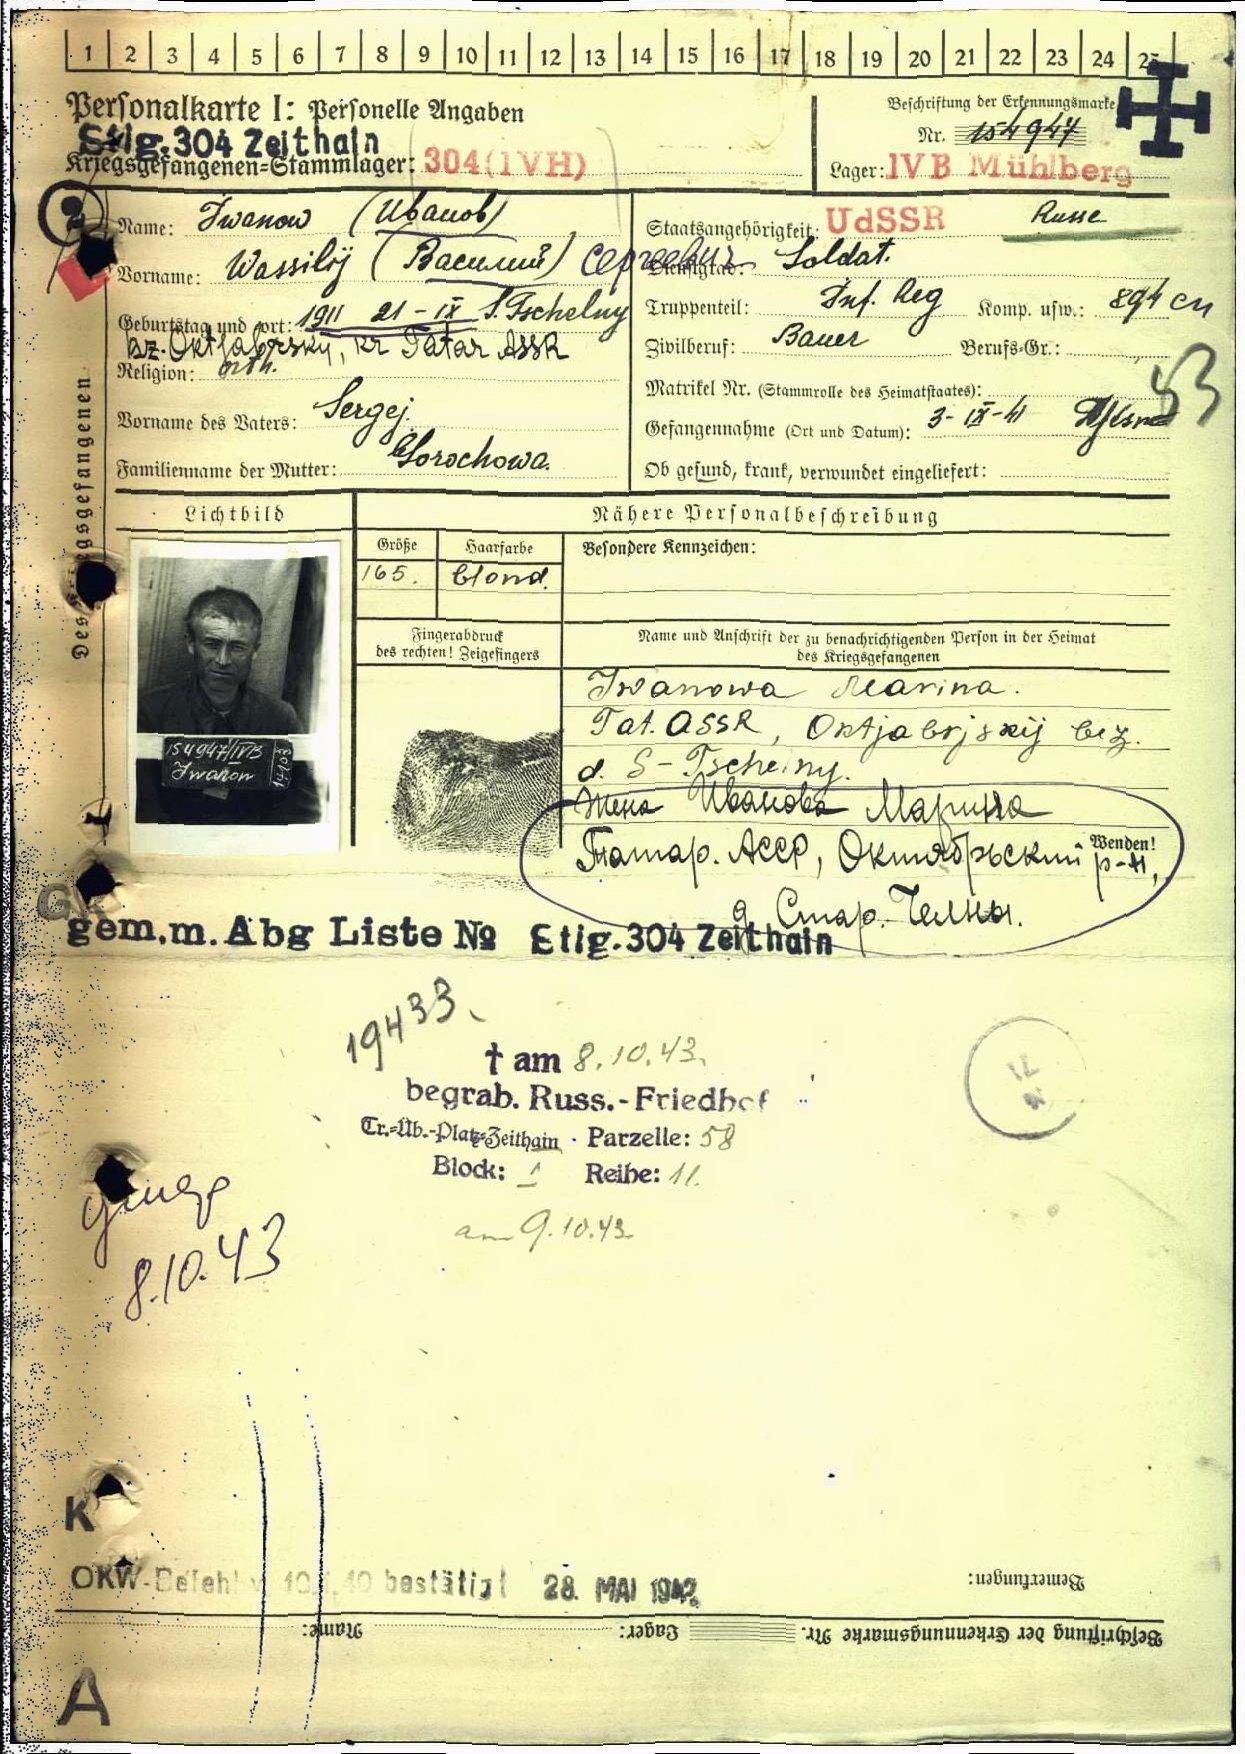 1 2 3 4 5 6 7 8 9 10 11 12 13 14 15 16 17 18 19 20 21 22 23 24 25
Personalkarte I: Personelle Angaben
Stlg. 304 Zeithain
Kriegsgefangenen-Stammlager: 304 (IVH)
Beschriftung der Erkennungsmarke
Nr. 154947
Lager: IV B Mühlberg
Des Kriegsgefangenen
Name: Iwanow (Иванов)
Vorname: Wassilij (Василий) Сергеевич
Geburtstag und -ort: 1911 21-IX S. Tschelny
bz. Oktjabrsky, kr Tatar ASSR
Religion: orth.
Vorname des Vaters: Sergej.
Familienname der Mutter: Sorochowa.
Staatsangehörigkeit: UdSSR Russe
Dienstgrad: Soldat.
Truppenteil: Inf. Reg Komp. usw.: 894 сп
Zivilberuf: Bauer Berufs-Gr.:
Matrikel Nr. (Stammrolle des Heimatstaates):
Gefangennahme (Ort und Datum): 3-IX-41
Ob gesund, krank, verwundet eingeliefert:
53
Lichtbild
Nähere Personalbeschreibung
Größe Haarfarbe Besondere Kennzeichen:
165. blond.
Fingerabdruck
des rechten! Zeigefingers
Name und Anschrift der zu benachrichtigenden Person in der Heimat
des Kriegsgefangenen
154947/IVB
Iwanow
Iwanowa Marina.
Tat. ASSR, Oktjabrjskij bez.
d. S-Tschelny.
Жена Иванова Марина
Татар. АССР, Октябрьский р-н,
Wenden!
д. Стар. Челны.
gem. m. Abg Liste № Stlg. 304 Zeithain
19433
† am 8.10.43.
begrab. Russ.-Friedhof
Tr.-Üb.-Platz-Zeithain Parzelle: 58
Block: 1 Reihe: 11.
am 9.10.43
умер
8.10.43
K
OKW-Befehl v. 10.1.40 bestätigt 28. MAI 1942
Bemerkungen:
Beschriftung der Erkennungsmarke Nr. Lager: Name:
A